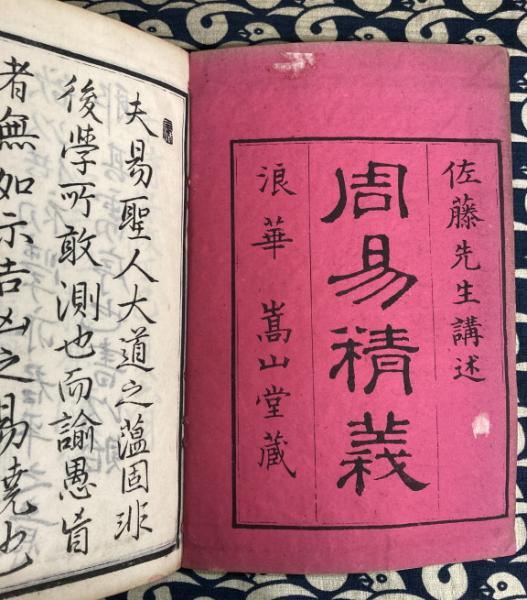 佐藤先生講述
周易精義
浪華 嵩山堂蔵
夫易聖人大道之薀固非
後學所敢測也而諭愚昏
者無如示吉凶之易尭也